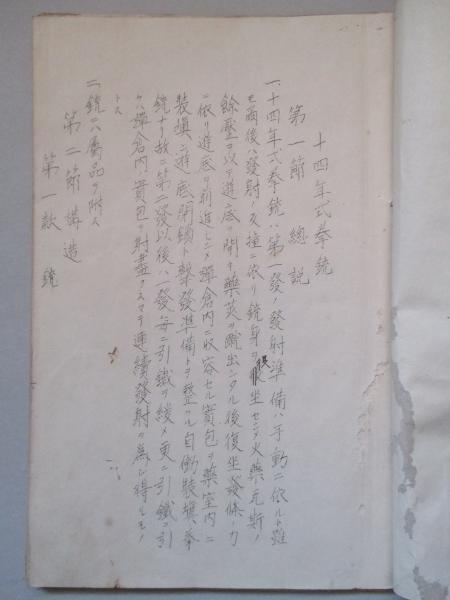 十四年式拳銃
第一節 總説
一、十四年式拳銃ハ第一發ノ發射準備ハ手動ニ依ルト雖
モ爾後ハ發射ノ反撞ニ依リ銃身ヲ後坐セシメ火藥瓦斯ノ
餘壓ヲ以テ遊底ヲ開キ藥莢ヲ蹴出シタル後復坐發條ノ力
ニ依リ遊底ヲ前進セシメ彈倉内ニ收容セル實包ヲ藥室内ニ
裝塡シ遊底ノ閉鎖ト擊發準備トヲ整フル自働裝塡拳
銃ナリ故ニ第二發以後ハ一發每ニ引鐵ヲ緩メ更ニ引鐵ヲ引
ケハ彈倉内ノ實包ヲ射盡クスマテ連續發射ヲ為シ得ルモノ
トス
二、銃ニハ屬品ヲ附ス
第二節 構造
第一款 銃